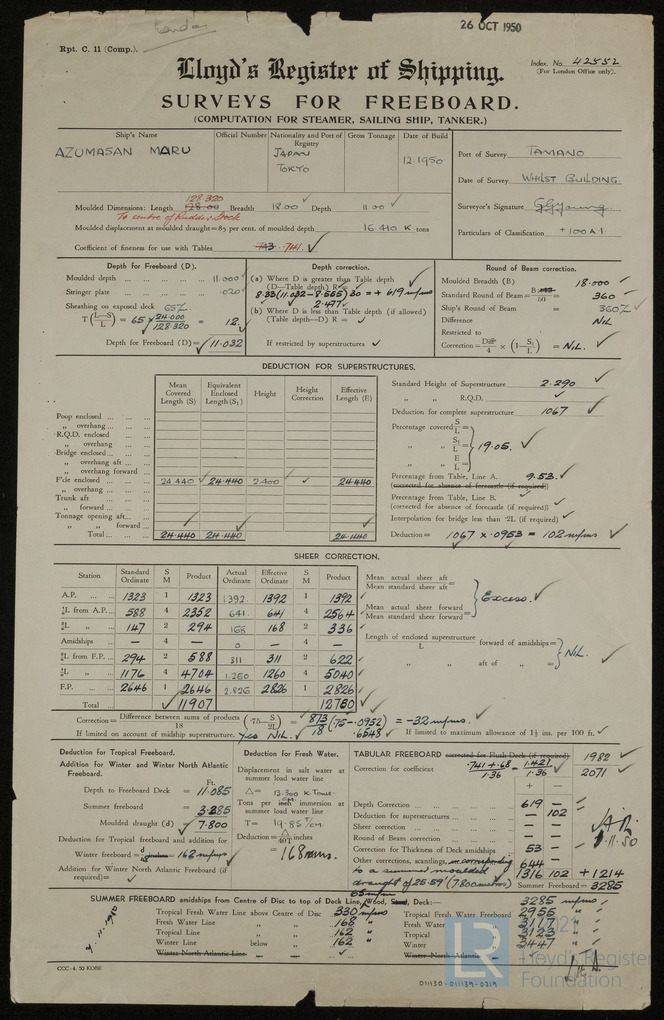 26 OCT 1950
Rpt. C. 11 (Comp.).
Index. No. 42552
(For London Office only).
Lloyd's Register of Shipping.
SURVEYS FOR FREEBOARD.
(COMPUTATION FOR STEAMER, SAILING SHIP, TANKER.)
Ship's Name
Official Number
Nationality and Port of Registry
Gross Tonnage
Date of Build
AZUMASAN MARU
JAPAN
TOKYO
12.1950
Port of Survey TAMANO
Date of Survey WHILST BUILDING.
Surveyor's Signature
Particulars of Classification +100 A1
128.320
Moulded Dimensions: Length 128.00 Breadth 18.00 Depth 11.00
To centre of Rudder Stock
Moulded displacement at moulded draught=85 per cent. of moulded depth 16 410 K tons
Coefficient of fineness for use with Tables .743 .741
Depth for Freeboard (D).
Moulded depth 11.000
Stringer plate .020
Sheathing on exposed deck 65%
T(L-S/L) = 65 × 24.000/128.320 = 12
Depth for Freeboard (D)= 11.032
Depth correction.
(a) Where D is greater than Table depth
(D—Table depth) R =
8.33(11.032-8.555)30 = + 619 m/ms
2.477
(b) Where D is less than Table depth (if allowed)
(Table depth—D) R =
If restricted by superstructures
Round of Beam correction.
Moulded Breadth (B) 18.000
Standard Round of Beam= B/50 = 360
Ship's Round of Beam = 360
Difference NIL
Restricted to
Correction= Diff/4 × (1-S1/L) = NIL.
DEDUCTION FOR SUPERSTRUCTURES.
Mean Covered Length (S)
Equivalent Enclosed Length (S1)
Height
Height Correction
Effective Length (E)
Poop enclosed
„ overhang
R.Q.D. enclosed
„ overhang
Bridge enclosed
„ overhang aft
„ overhang forward
F'cle enclosed 24.440 24.440 2.400 24.440
„ overhang
Trunk aft
„ forward
Tonnage opening aft
„ „ forward
Total 24.440 24.440 24.440
Standard Height of Superstructure 2.290
„ „ R.Q.D.
Deduction for complete superstructure 1067
Percentage covered S/L =
S1/L = 19.05.
E/L =
Percentage from Table, Line A. 9.53.
(corrected for absence of forecastle (if required))
Percentage from Table, Line B.
(corrected for absence of forecastle (if required)
Interpolation for bridge less than ·2L (if required)
Deduction= 1067 x .0953 = 102 m/ms
SHEER CORRECTION.
Station Standard Ordinate S M Product Actual Ordinate Effective Ordinate S M Product
A.P. 1323 1 1323 1392 1392 1 1392
⅙L from A.P. 588 4 2352 641 641 4 2564
⅓L „ 147 2 294 168 168 2 336
Amidships — 4 — 0 — 4 —
⅓L from F.P. 294 2 588 311 311 2 622
⅙L „ 1176 4 4704 1.260 1260 4 5040
F.P. 2646 1 2646 2.826 2826 1 2826
Total 11907 12780
Mean actual sheer aft
Mean standard sheer aft =
Mean actual sheer forward
Mean standard sheer forward =
Excess.
Length of enclosed superstructure
L forward of amidships =
„ „ aft of „ =
NIL.
Correction= Difference between sums of products / 18 (·75- S/2L) = 873/18 (.75-.0952) = -32 m/ms.
.6548
If limited on account of midship superstructure. Yes NIL.
If limited to maximum allowance of 1½ ins. per 100 ft.
Deduction for Tropical Freeboard.
Addition for Winter and Winter North Atlantic Freeboard.
Ft.
Depth to Freeboard Deck = 11.085
Summer freeboard = 3.285
Moulded draught (d) = 7.800
Deduction for Tropical freeboard and addition for
Winter freeboard = 162 m/ms
Addition for Winter North Atlantic Freeboard (if required)=
Deduction for Fresh Water.
Displacement in salt water at summer load water line
Δ= 13.300 K Tons.
Tons per inch immersion at summer load water line
cm
T= 19.85 T/cm.
Deduction= Δ/40T
= 168 mms.
TABULAR FREEBOARD corrected for Flush Deck (if required) 1982
Correction for coefficient .741+.68/1.36 = 1.421/1.36 2071
+ -
Depth Correction 619 —
Deduction for superstructures — 102
Sheer correction — —
Round of Beam correction — —
Correction for Thickness of Deck amidships 53 —
Other corrections, scantlings, corresponding 644 —
to a summer moulded
draught of 25.59' (7.800 metres)
1316 102 +1214
Summer Freeboard = 3285
SUMMER FREEBOARD amidships from Centre of Disc to top of Deck Line, Wood, Steel, Deck:—
Tropical Fresh Water Line above Centre of Disc 330 m/ms
Fresh Water Line „ „ 168 „
Tropical Line „ „ 162 „
Winter Line below „ „ 162 „
Winter North Atlantic Line „ „
3285 m/ms
Tropical Fresh Water Freeboard 2955 „
Fresh Water „ 3117 „
Tropical „ 3123 „
Winter „ 3447 „
Winter North Atlantic „
CCC-4. 50 KOBE
LR
Lloyd's Register
Foundation
011130-011139-0219